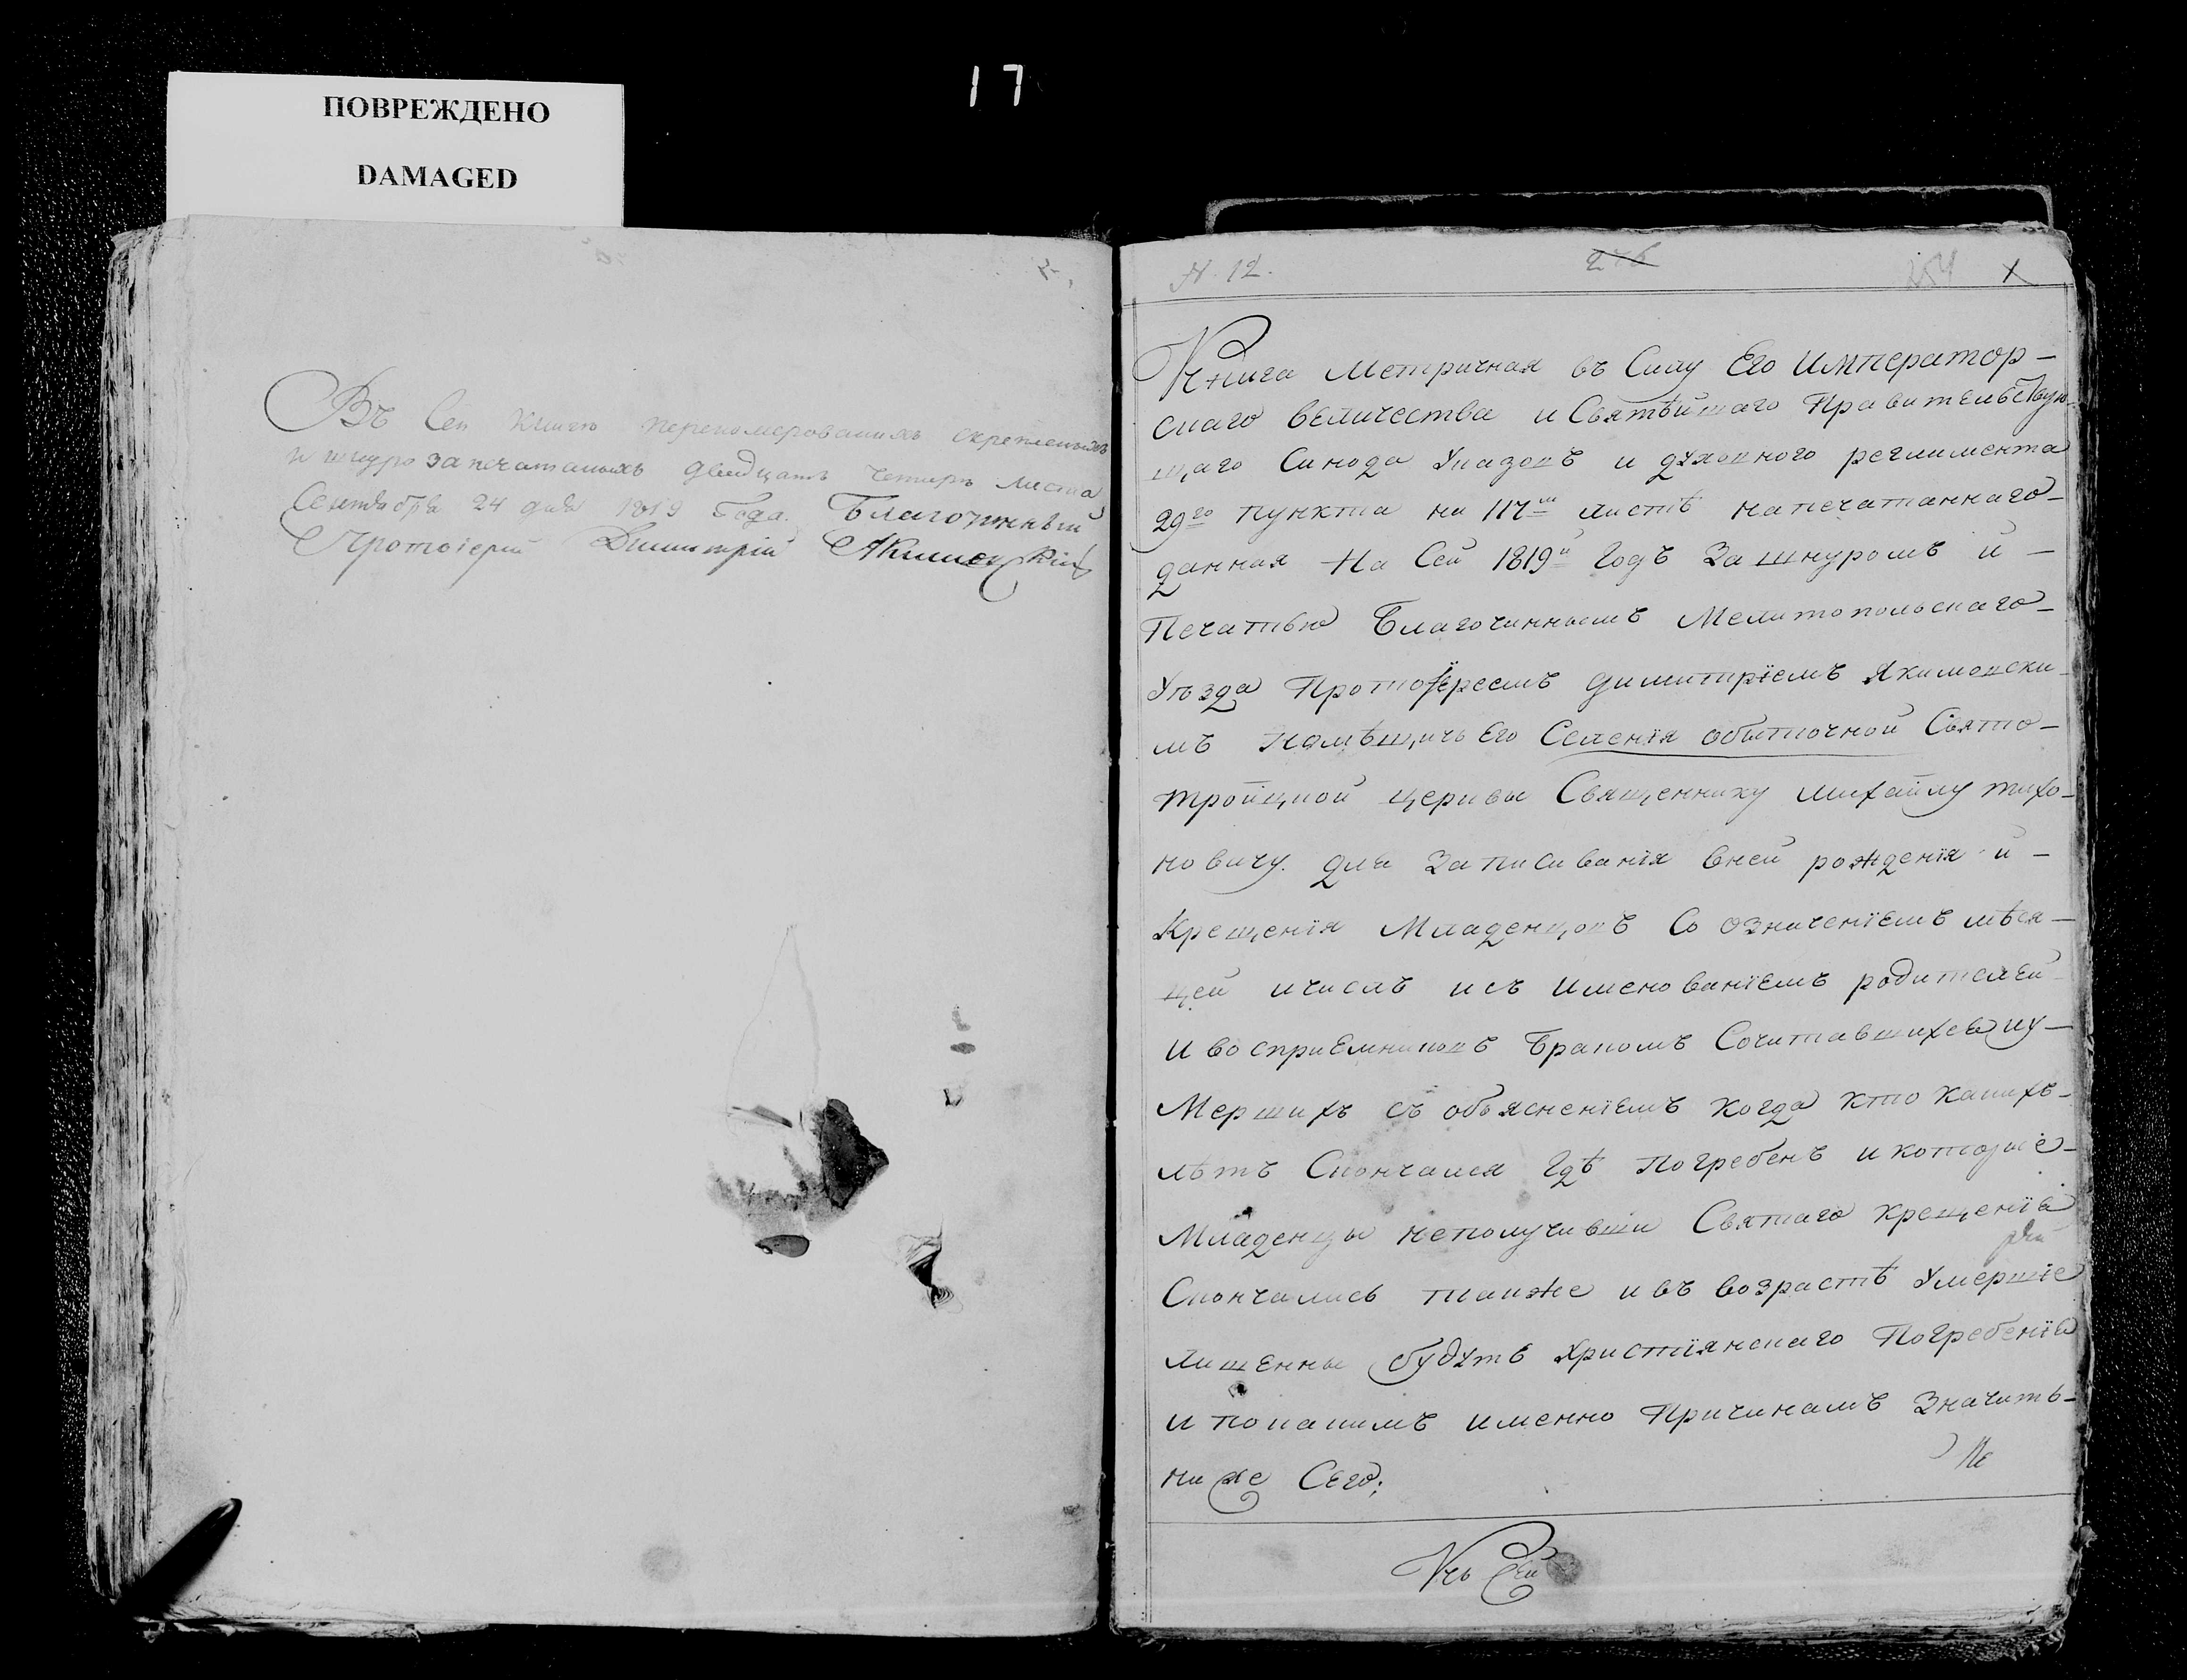 17
ПОВРЕЖДЕНО
DAMAGED
Въ Сей книги перенумерованныхъ скрепленныхъ
и шнуро запечатаныхъ двадцать четыре листа
Сентября 24 дня 1819 Года. Благочинный
Протоіерей Димитрій Акимовскій
N. 12.
254
Книга Метричная въ Силу Его Император-
скаго величества и Святѣйшаго Правительствую-
щаго Синода Указовъ и духовного реглимента
29го пункта на 117м листѣ напечатаннаго-
данная На Сей 1819й Годъ За шнуромъ и-
Печатью Благочиннымъ Мелитопольскаго-
Уѣзда Протоіереемъ димитріемъ Якимовски-
мъ Помѣщичьего Селенія обыточной Свято-
тройцкой церквы Священнику михайлу тихо-
новичу. для Записиванія вней рожденія и-
Крещенія Младенцовъ Со означеніемъ мѣся-
цей ичислъ исъ именованіемъ родителей
И восприемниковъ Бракомъ Сочитавшихся иу-
Мершихъ съ обьясненіемъ когда кто какихъ-
лѣтъ Скончался гдѣ Погребенъ и которые-
Младенцы неполучивши Святаго крещенія
Скончались также ивъ возрастѣ Умершіе
лишенны будутъ христіянскаго Погребенія
и покакимъ именно Причинамъ Значитъ-
ниже Сего;
Къ Сей